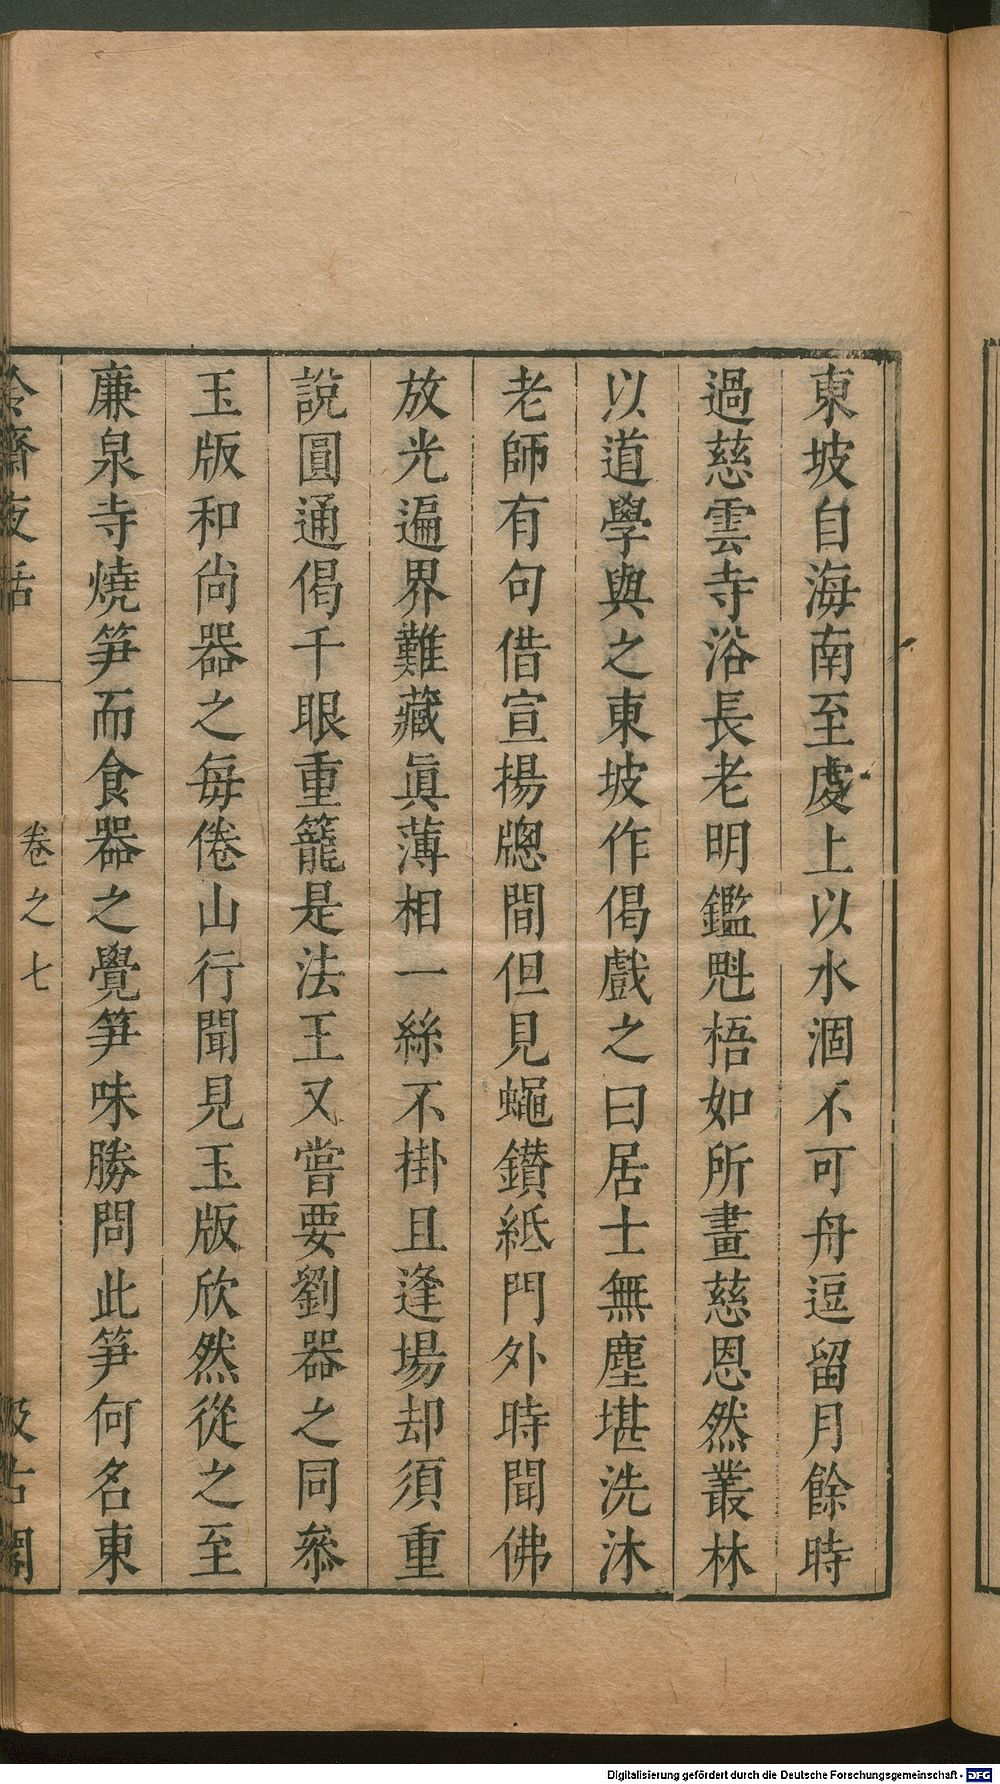 東坡自海南至虔上以水涸不可舟逗留月餘時
過慈雲寺浴長老明鑑魁梧如所畫慈恩然叢林
以道學與之東坡作偈戲之曰居士無塵堪洗沐
老師有句借宣揚牕間但見蠅鑚紙門外時聞佛
放光遍界難藏眞薄相一絲不掛且逢場却須重
說圓通偈千眼重籠是法王又嘗要劉器之同叅
玉版和尙器之每倦山行聞見玉版欣然從之至
廉泉寺燒笋而食器之覺笋味勝問此笋何名東
冷齋夜話 卷之七 汲古閣
Digitalisierung gefördert durch die Deutsche Forschungsgemeinschaft - DFG